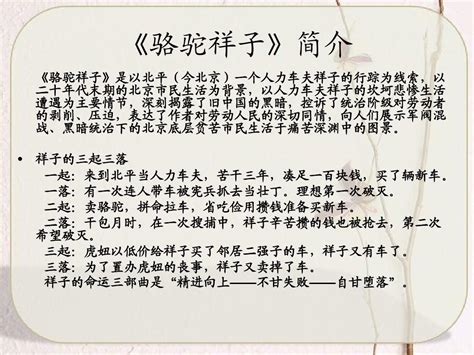 《骆驼祥子》简介
《骆驼祥子》是以北平（今北京）一个人力车夫祥子的行踪为线索，以
二十年代末期的北京市民生活为背景，以人力车夫祥子的坎坷悲惨生活
遭遇为主要情节，深刻揭露了旧中国的黑暗，控诉了统治阶级对劳动者
的剥削、压迫，表达了作者对劳动人民的深切同情，向人们展示军阀混
战、黑暗统治下的北京底层贫苦市民生活于痛苦深渊中的图景。
• 祥子的三起三落
一起：来到北平当人力车夫，苦干三年，凑足一百块钱，买了辆新车。
一落：有一次连人带车被宪兵抓去当壮丁。理想第一次破灭。
二起：卖骆驼，拼命拉车，省吃俭用攒钱准备买新车。
二落：干包月时，在一次搜捕中，祥子辛苦攒的钱也被抢去，第二次
希望破灭。
三起：虎妞以低价给祥子买了邻居二强子的车，祥子又有车了。
三落：为了置办虎妞的丧事，祥子又卖掉了车。
祥子的命运三部曲是“精进向上——不甘失败——自甘堕落”。